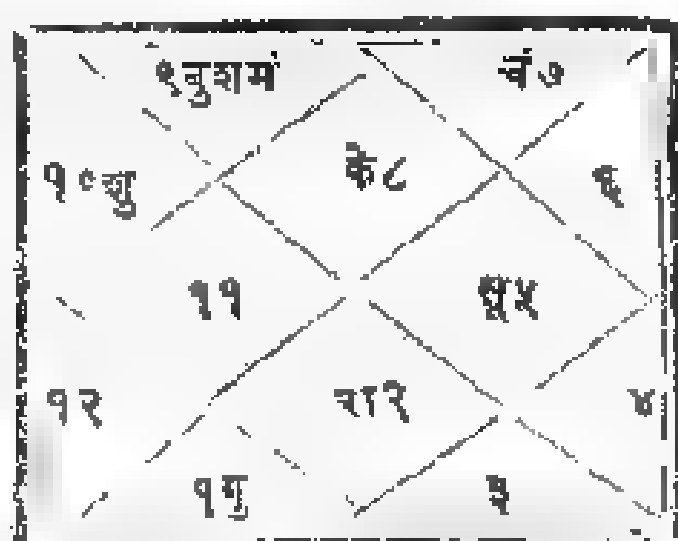 ९बुशमं
चं७
१०शु
के८
६
११
सू५
१२
रा२
४
१गु
३